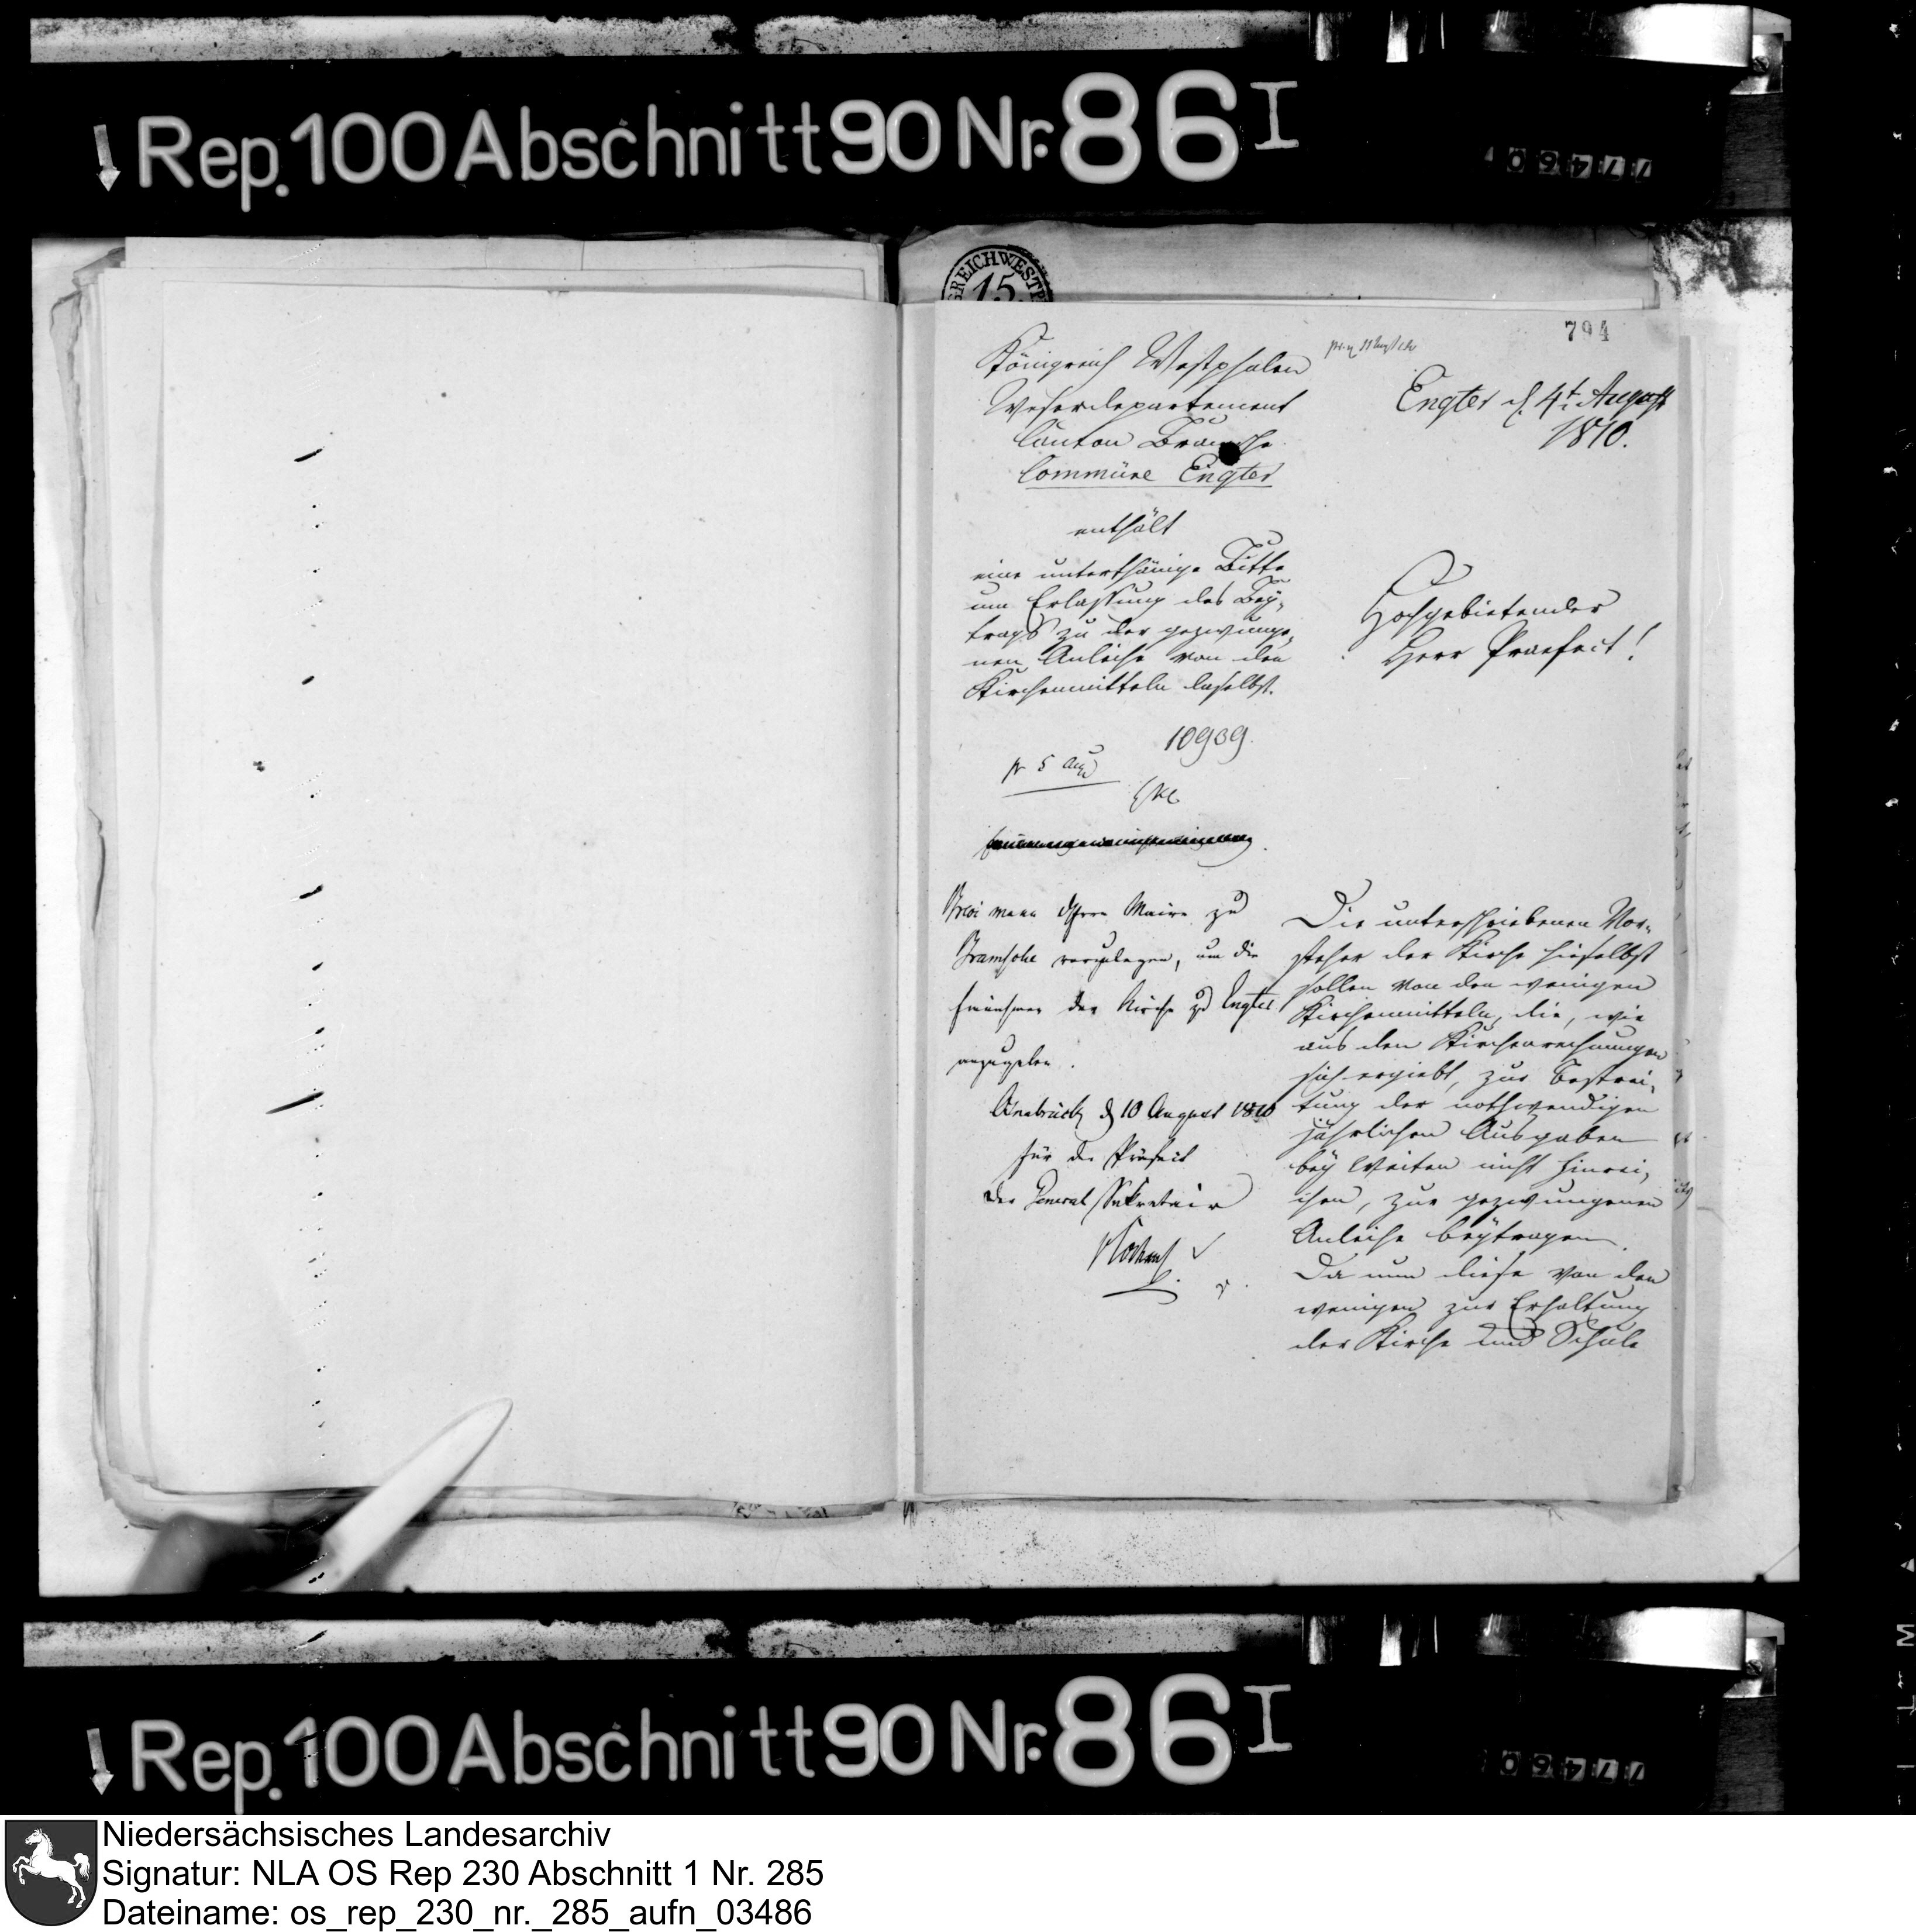 Rep. 100 Abschnitt 90 Nr. 86 I
77460
REICH WESTP
15
794
Königreich Westphalen
Weserdepartement
Canton Bramsche
Commüne Engter
Engter d. 4t. August
1810.
enthält
eine unterthänige Bitte
um Erlassung des Bey-
trags zu der gezwunge-
nen Anleihe von den
Kirchenmitteln daselbst.
Hochgebietender
Herr Praefect!
10909.
pr 5 Aug
Maire zu
Bramsche vorzulegen, um die
Einnahme der Kirche zu Engter
anzugeben.
Osnabrück d 10 August 1810
für den Präfect
der General Sekretair
Die unterschriebenen Vor-
steher der Kirche hieselbst
sollen von den wenigen
Kirchenmitteln, die, wie
aus den Kirchenrechnungen
sich ergiebt, zur Bestrei-
tung der nothwendigen
jährlichen Ausgaben
bey Weiten nicht hinrei-
chen, zur gezwungenen
Anleihe beytragen.
Da nun diese von den
wenigen zur Erhaltung
der Kirche und Schule
Rep. 100 Abschnitt 90 Nr. 86 I
77460
Niedersächsisches Landesarchiv
Signatur: NLA OS Rep 230 Abschnitt 1 Nr. 285
Dateiname: os_rep_230_nr._285_aufn_03486